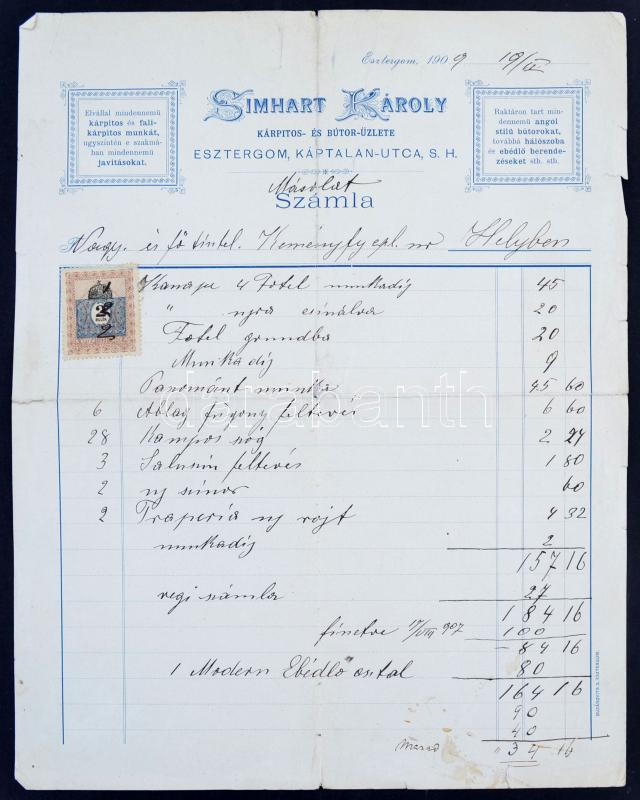 Esztergom, 1909 19/IV
Elvállal mindennemű
kárpitos és fali-
kárpitos munkát,
ugyszintén e szakmá-
ban mindennemű
javitásokat.
SIMHART KÁROLY
KÁRPITOS- ÉS BÚTOR-ÜZLETE
ESZTERGOM, KÁPTALAN-UTCA, S. H.
Raktáron tart min-
dennemű angol
stilű bútorokat,
továbbá hálószoba
és ebédlő berende-
zéseket stb. stb.
Másolat
Számla
Nagy. és fő tintel. Keményfy úr Helyben
2
Kanape 4 Fotel munkadij 45
" ujra csinálva 20
Fotel grundba 20
Munkadij 9
munka 45 60
6 Ablag fügony feltevés 6 60
28 Kampos szög 2 24
3 feltevés 1 80
2 uj sinor 60
2 Traperia uj rojt 4 32
munkadij 2
157 16
regi számla 27
184 16
fizetve 17/VIII 907 100
84 16
1 Modern Ebédlő asztal 80
164 16
90
40
marad 34 16
darabanth
BUZÁROVITS G. ESZTERGOM.